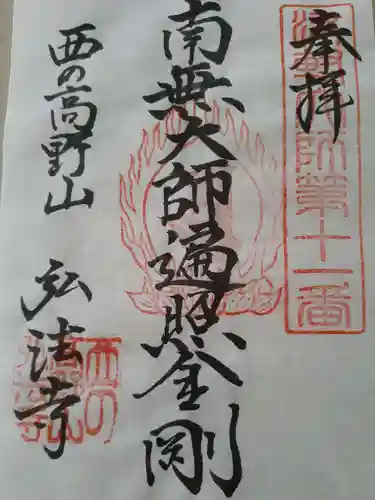 奉拝
師第十一番
南無大師遍照金剛
西の高野山 弘法寺
西の